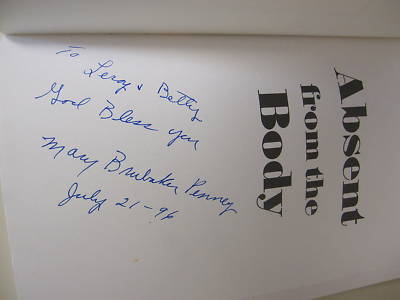 To Leroy & Betty
God Bless you
Mary Brubaker Penney
July 21-96
Absent
from the
Body